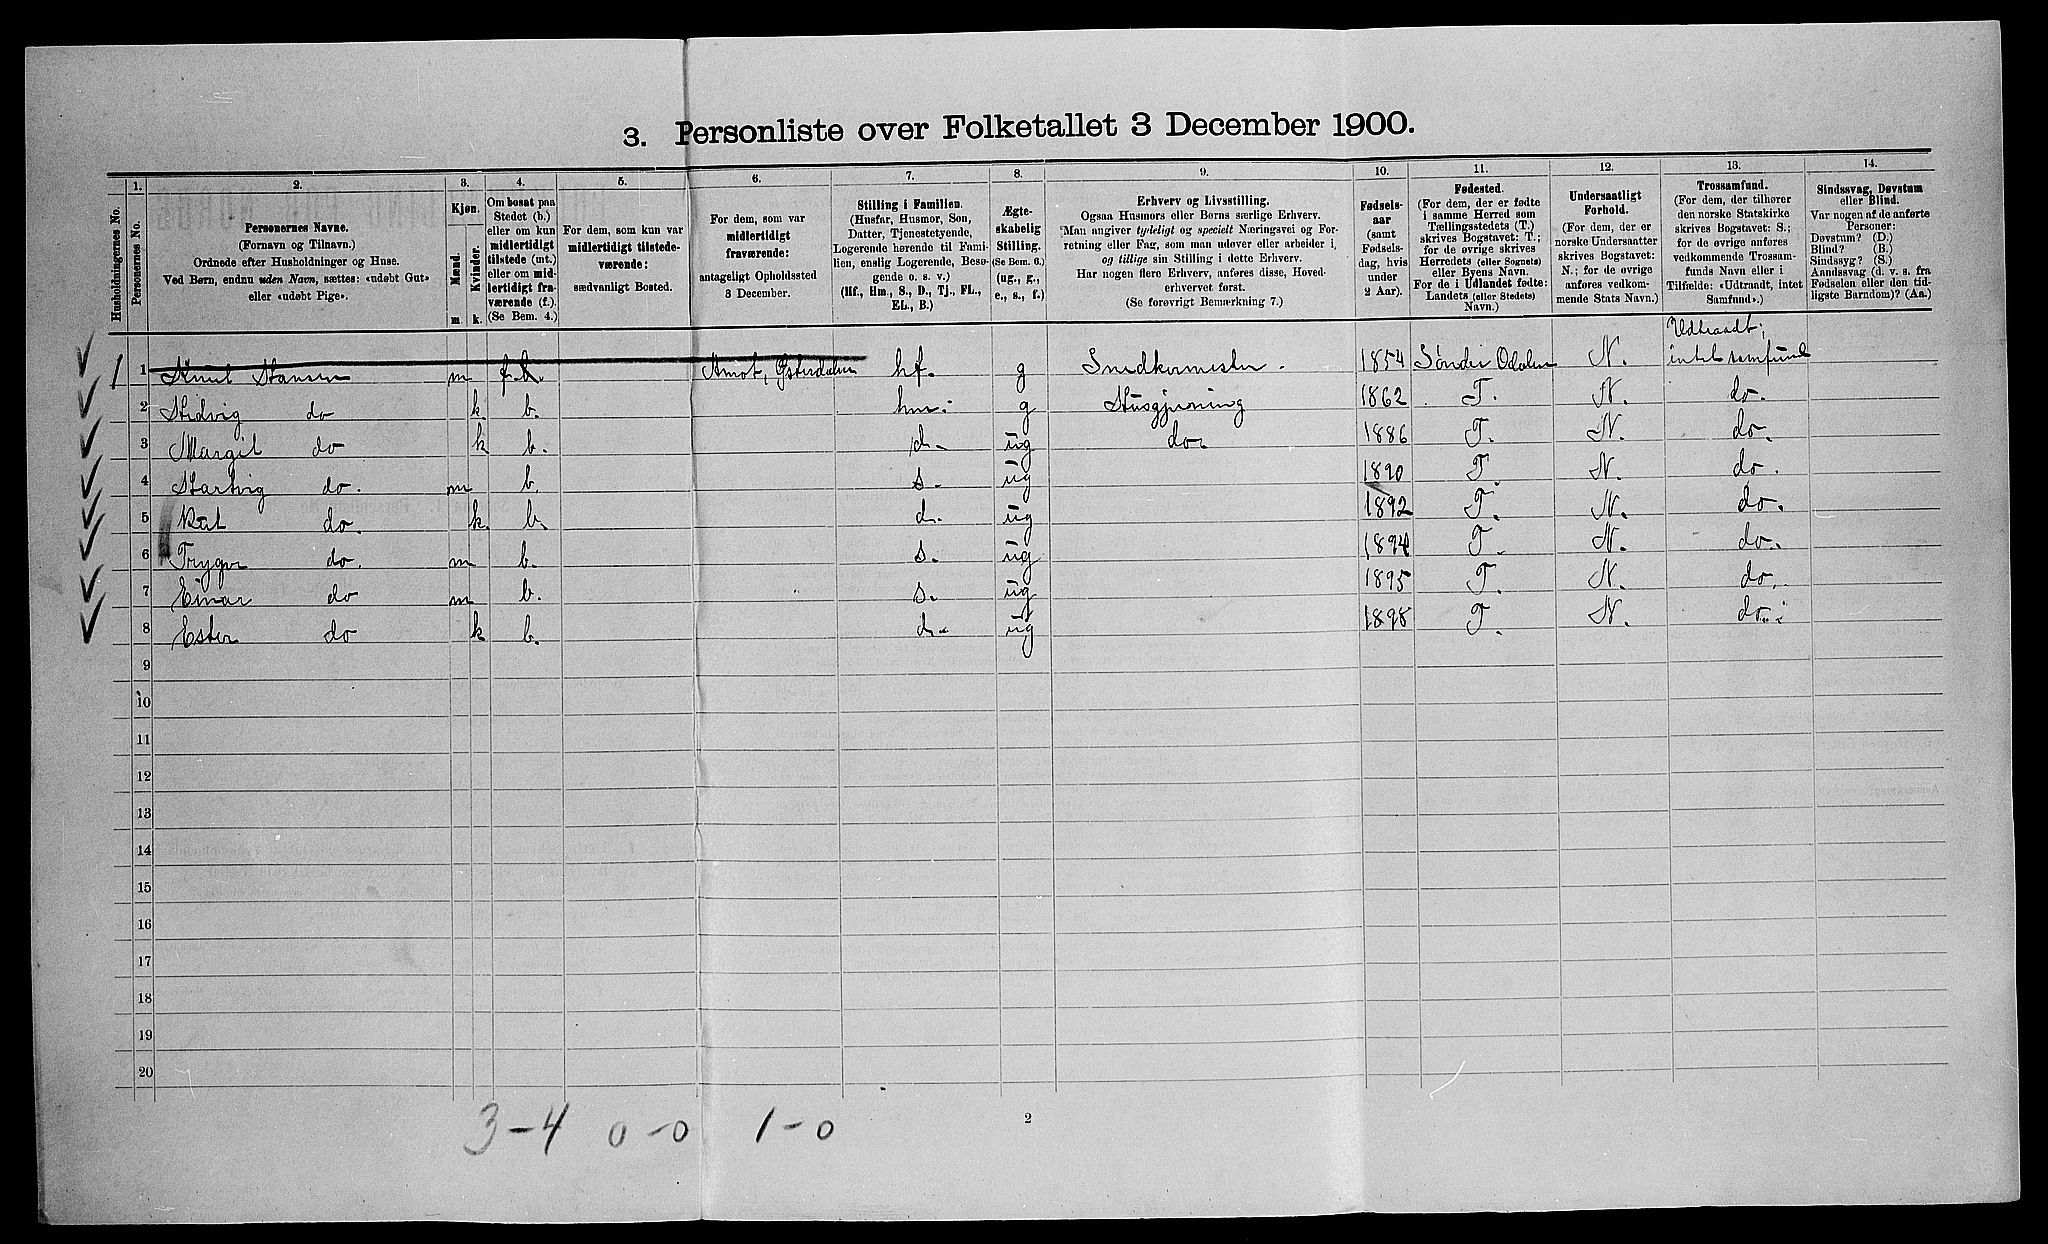 3. Personliste over Folketallet 3 December 1900.
Husholdningernes No.
1. Personernes No.
2. Personernes Navne. (Fornavn og Tilnavn.) Ordnede efter Husholdninger og Huse. Ved Børn, endnu uden Navn, sættes: «udøbt Gut» eller «udøbt Pige».
3. Kjøn. Mænd. m. Kvinder. k.
4. Om bosat paa Stedet (b.) eller om kun midlertidigt tilstede (mt.) eller om midlertidigt fraværende (f.) (Se Bem. 4.)
5. For dem, som kun var midlertidigt tilstedeværende: sædvanligt Bosted.
6. For dem, som var midlertidigt fraværende: antageligt Opholdssted 3 December.
7. Stilling i Familien. (Husfar, Husmor, Søn, Datter, Tjenestetyende, Logerende hørende til Familien, enslig Logerende, Besøgende o. s. v.) (Hf., Hm., S., D., Tj., FL., EL., B.)
8. Ægteskabelig Stilling. (Se Bem. 6.) (ug., g., e., s., f.)
9. Erhverv og Livsstilling. Ogsaa Husmors eller Børns særlige Erhverv. Man angiver tydeligt og specielt Næringsvei og Forretning eller Fag, som man udøver eller arbeider i, og tillige sin Stilling i dette Erhverv. Har nogen flere Erhverv, anføres disse, Hovederhvervet først. (Se forøvrigt Bemærkning 7.)
10. Fødselsaar (samt Fødselsdag, hvis under 2 Aar).
11. Fødested. (For dem, der er fødte i samme Herred som Tællingsstedets (T.) skrives Bogstavet: T.; for de øvrige skrives Herredets (eller Sognets) eller Byens Navn. For de i Udlandet fødte: Landets (eller Stedets) Navn.)
12. Undersaatligt Forhold. (For dem, der er norske Undersaatter skrives Bogstavet: N.; for de øvrige anføres vedkommende Stats Navn.)
13. Trossamfund. (For dem, der tilhører den norske Statskirke skrives Bogstavet: S.; for de øvrige anføres vedkommende Trossamfunds Navn eller i Tilfælde: «Udtraadt, intet Samfund».)
14. Sindssvag, Døvstum eller Blind. Var nogen af de anførte Personer: Døvstum? (D.) Blind? (B.) Sindssyg? (S.) Aandssvag (d. v. s. fra Fødselen eller den tidligste Barndom)? (Aa.)
1 1 Knut Hansen m f. b. Amot, Østerdalen hf. g Snedkermester. 1854 Søndre Odalen N. Udtraadt; intet samfund
2 Hedvig do k b. hm. g Husgjerning 1862 T. N. do.
3 Margit do k b. d. ug do. 1886 T. N. do.
4 Hartvig do. m b. s. ug 1890 T. N. do.
5 Rut do. k. b. d. ug 1892 T. N. do.
6 Trygve do. m b. s. ug 1894 T. N. do.
7 Einar do m b. s. ug 1895 T. N. do.
8 Ester do k b. d. ug 1898 T. N. do.
9
10
11
12
13
14
15
16
17
18
19
20
3-4 0-0 1-0
2